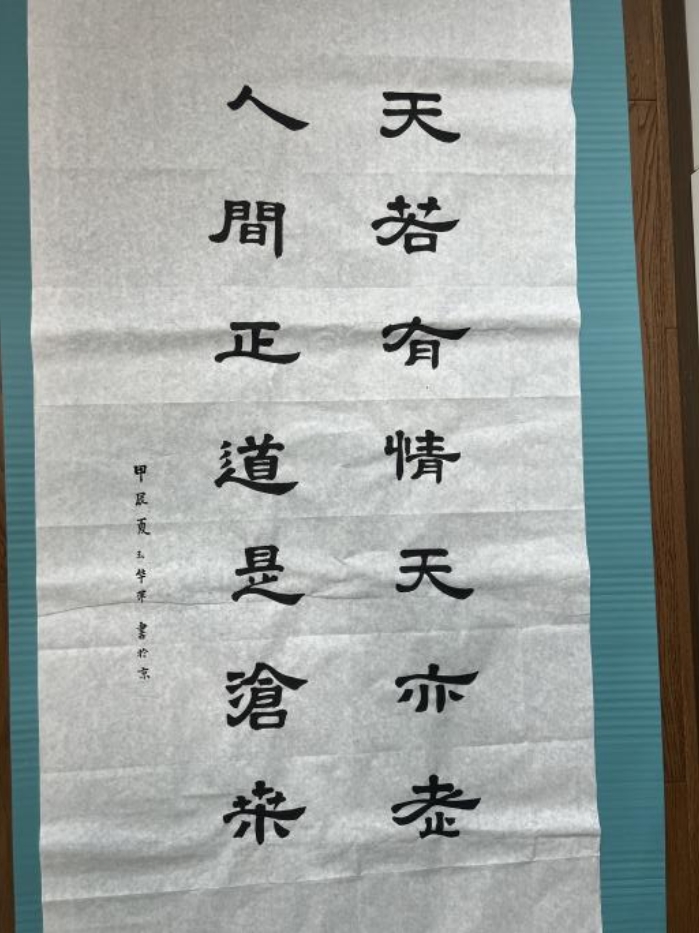 天若有情天亦老
人間正道是滄桒
甲辰夏 华 書於京